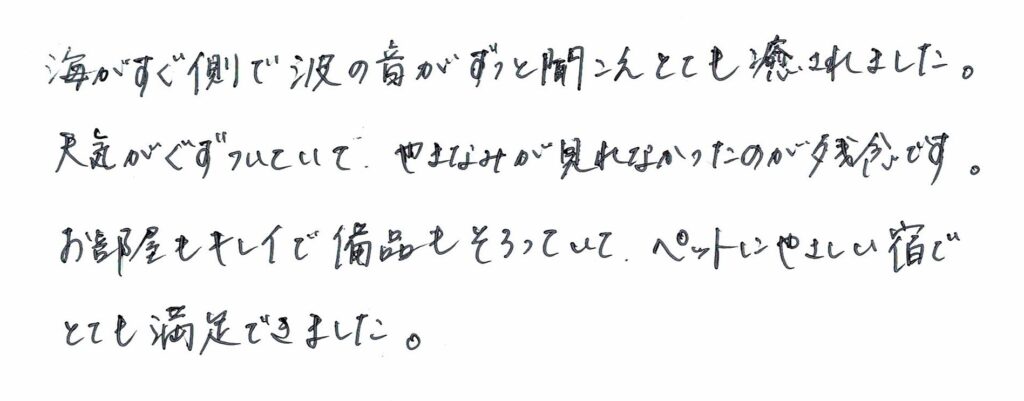 海がすぐ側で波の音がずっと聞こえとても癒されました。
天気がぐずついていて、やまなみが見れなかったのが残念です。
お部屋もキレイで備品もそろっていて、ペットにやさしい宿で
とても満足できました。